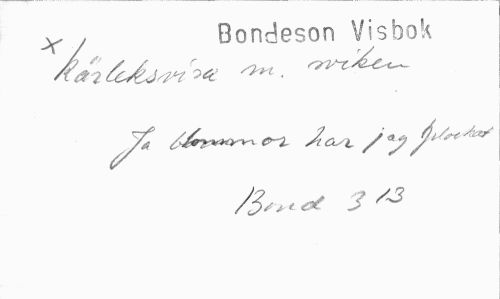 Bondeson Visbok
x Kärleksvisa m. sviken
Ja blommor har jag plockat
Bond 313